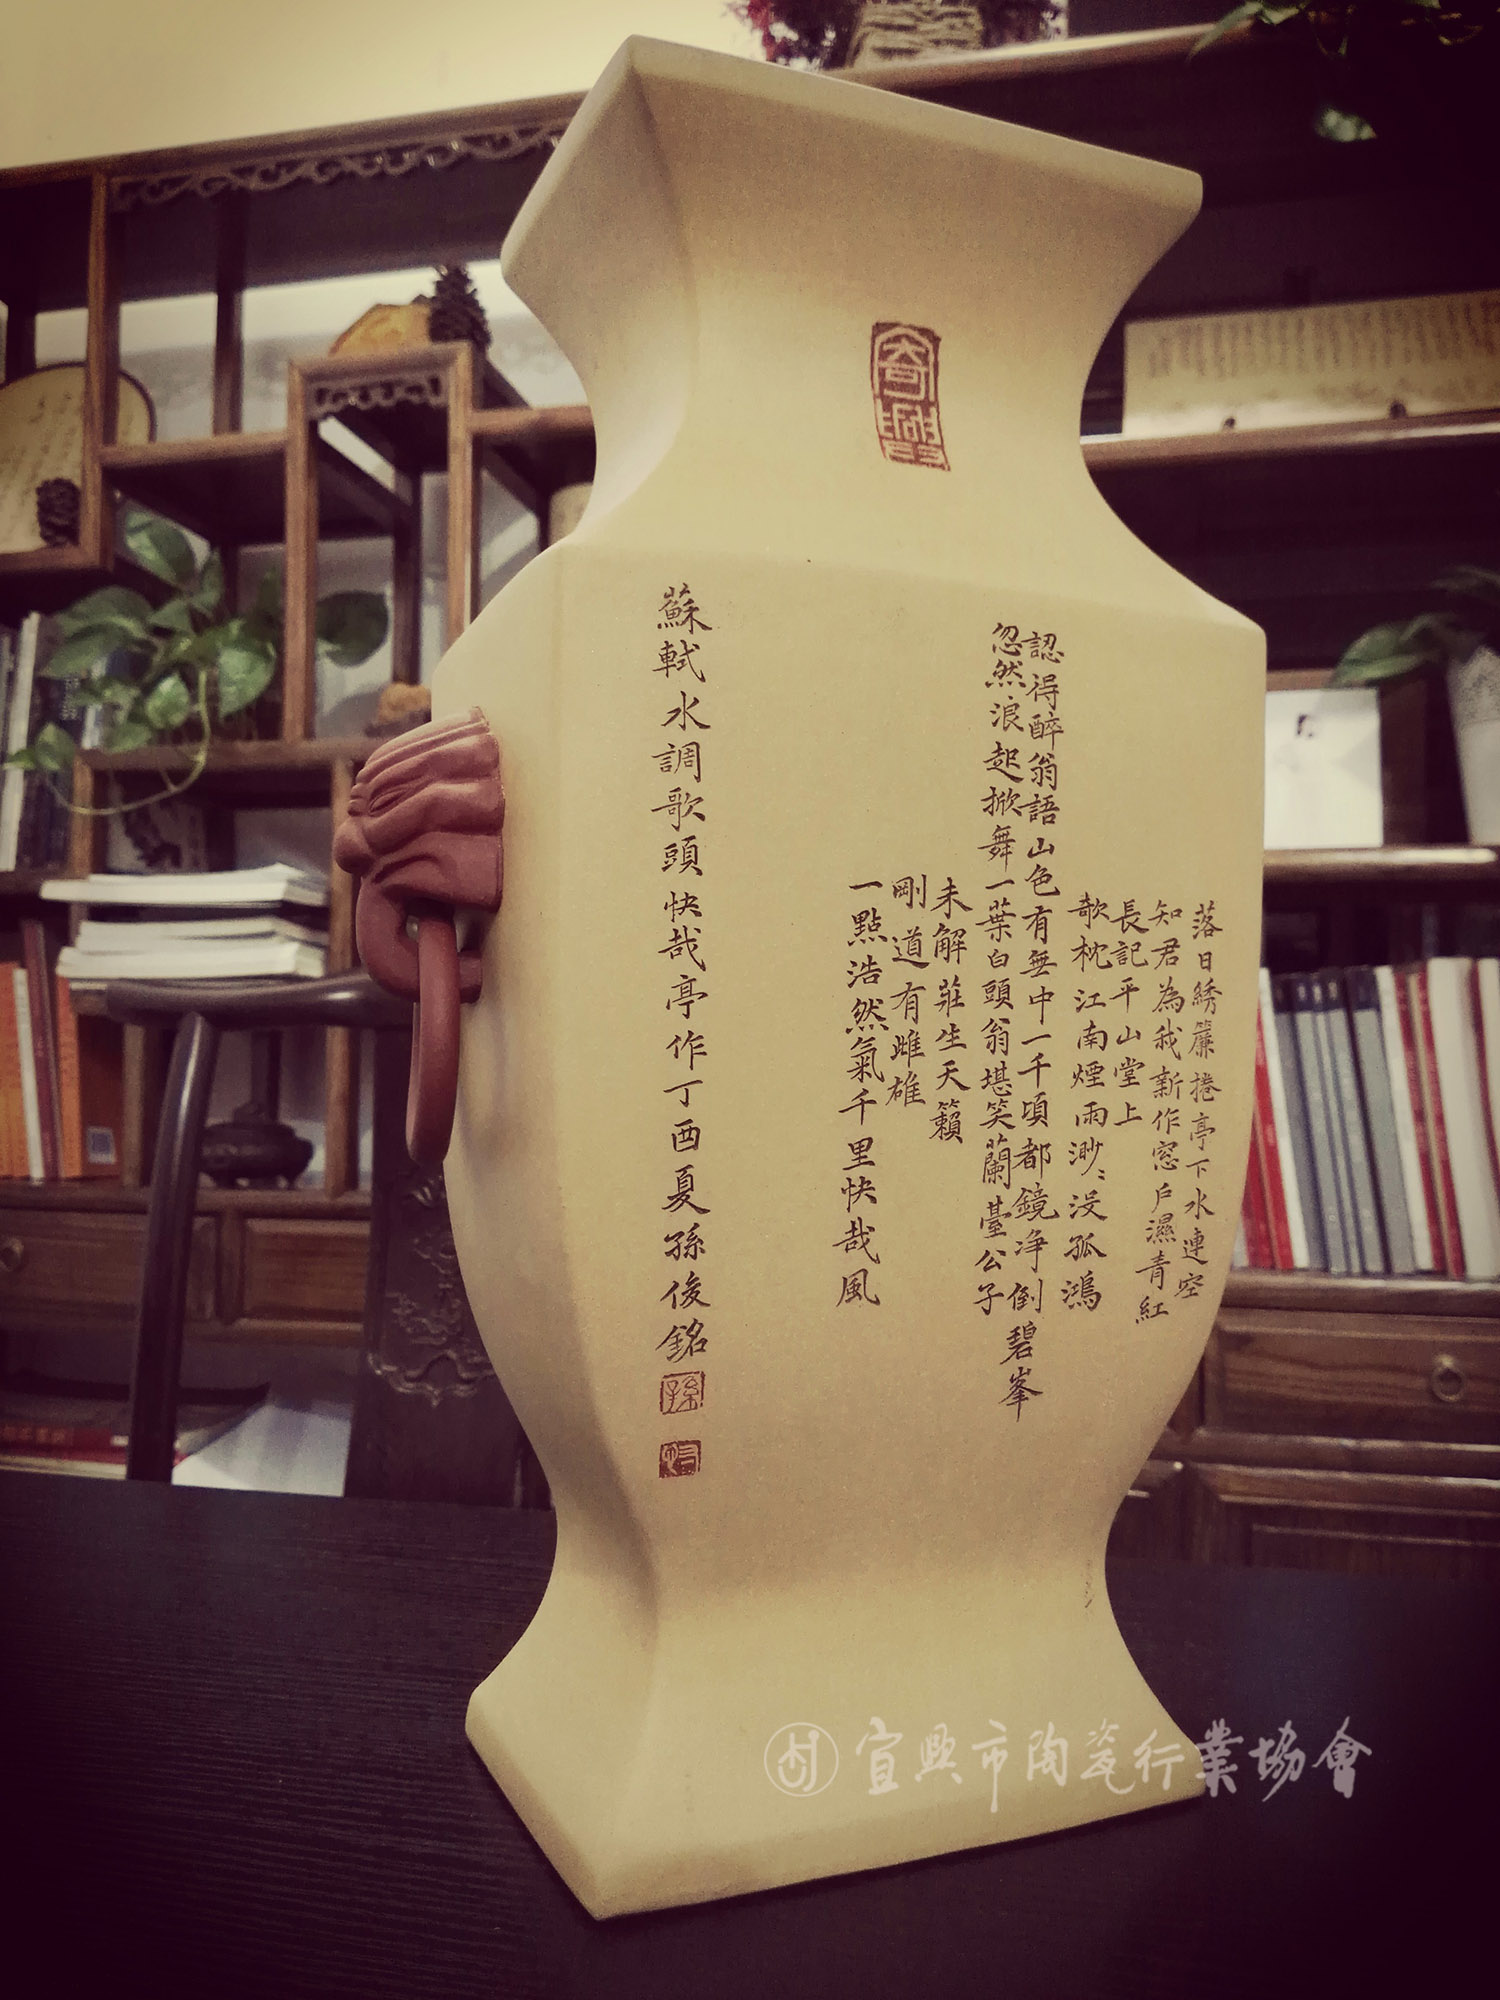 落日綉簾捲亭下水連空
知君為我新作窓戶濕青紅
長記平山堂上
欹枕江南煙雨渺〻没孤鴻
認得醉翁語山色有無中一千頃都鏡净倒碧峯
忽然浪起掀舞一葉白頭翁堪笑蘭臺公子
未解莊生天籟
剛道有雌雄
一點浩然氣千里快哉風
蘇軾水調歌頭快哉亭作丁酉夏孫俊銘
孫
宜興市陶瓷行業協會